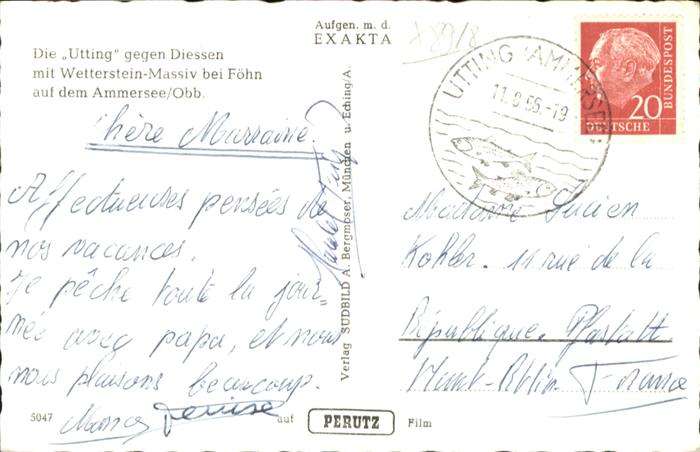 Aufgen. m. d.
EXAKTA
Die „Utting“ gegen Diessen
mit Wetterstein-Massiv bei Föhn
auf dem Ammersee/Obb.
Chère Marraine,
Affectueuses pensées de
nos vacances.
Je pêche toute la jour-
née avec papa, et nous
nous plaisons beaucoup.
Denise
5047
auf PERUTZ Film
Verlag SÜDBILD A. Bergmoser, München u. Eching/A.
UTTING AMMERSEE
20
DEUTSCHE
BUNDESPOST
Madame Lucien
Kohler. 11 rue de la
République. Pfastatt
Haut-Rhin France